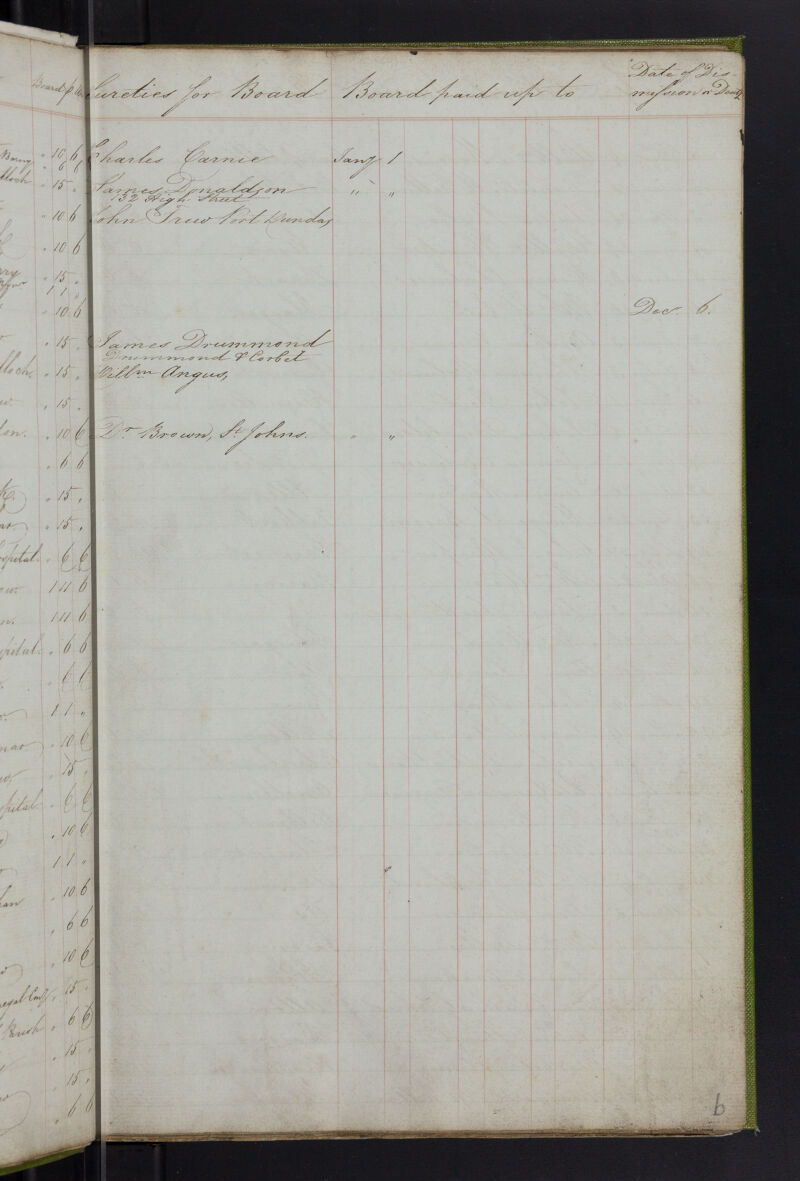 Board p
Sureties for Board Board paid up to Date of Dis-
mission or Death
10 6 Charles Carnie Jany 1
6 6
15 " James Donaldson " "
132 High Street
10 6 John Trew Port Dundas
10 6
15 "
1 1 "
10 6 Dec. 6.
15 " James Drummond
Drummond & Corbet
15 " Willm Angus,
15 "
10 6 Dr Brown, St Johns. " "
6 6
15 "
15 "
6 6
1 11 6
1 11 6
6 6
6 6
1 1 "
10 6
15 "
6 6
10 6
1 1 "
10 6
6 6
10 6
15 "
6 6
15 "
15 "
6 6
6